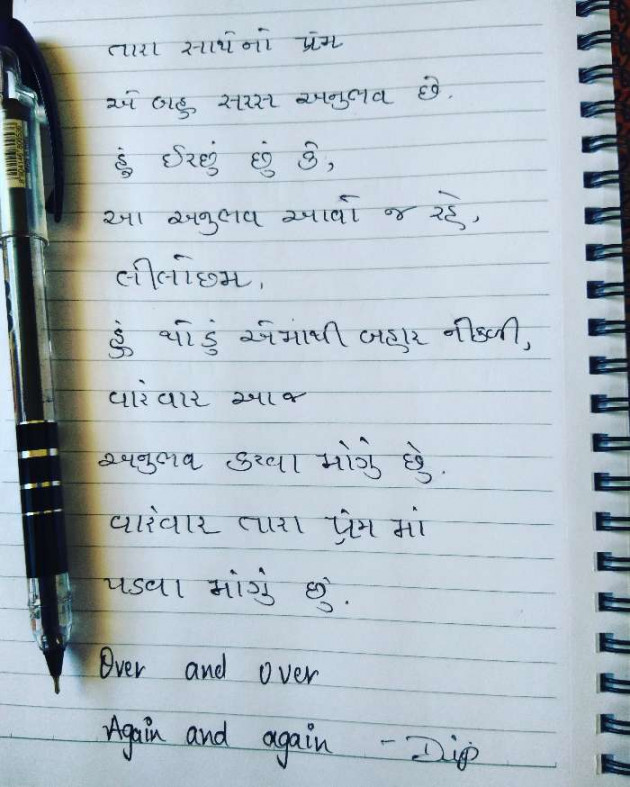 તારા સાથેનો પ્રેમ
એ બહુ સરસ અનુભવ છે.
હું ઈચ્છું છું કે,
આ અનુભવ આવો જ રહે,
લીલોછમ.
હું થોડું એમાંથી બહાર નીકળી,
વારંવાર આજ
અનુભવ કરવા માંગું છું.
વારંવાર તારા પ્રેમ માં
પડવા માંગું છું.
Over and over
Again and again - Dip